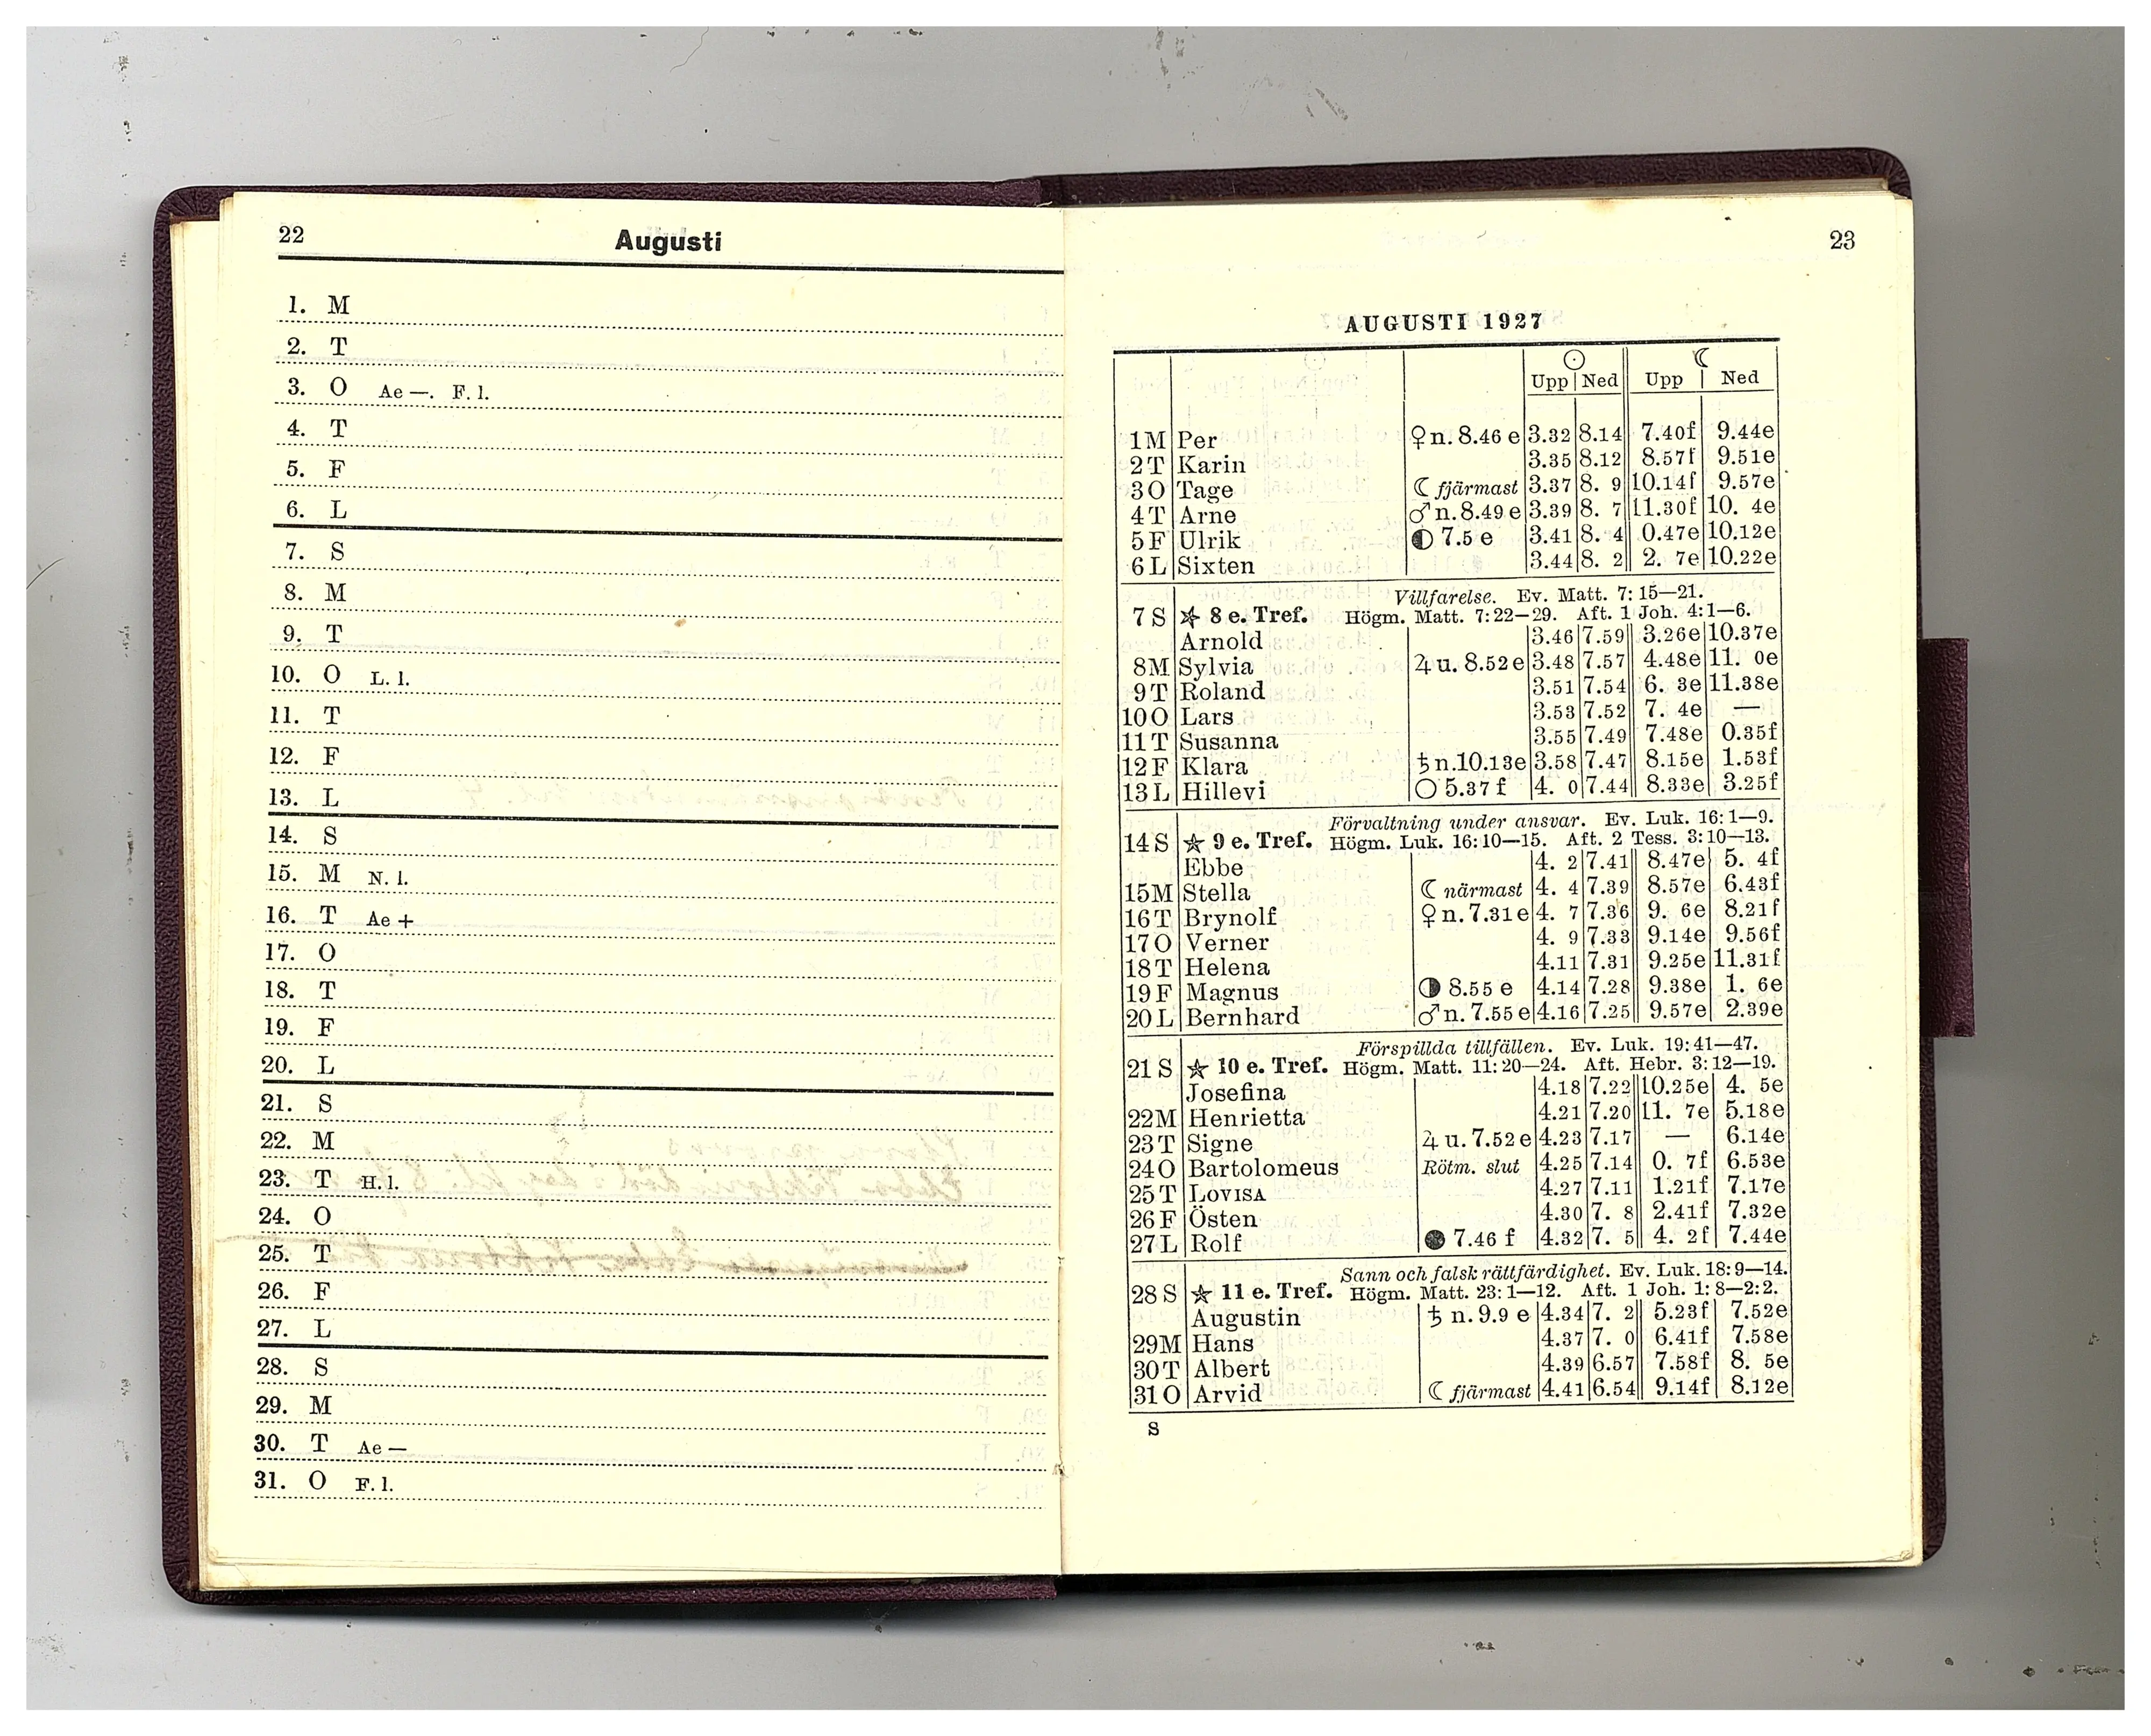 22
Augusti
1. M
2. T
3. O Ae —. F. l.
4. T
5. F
6. L
7. S
8. M
9. T
10. O L. l.
11. T
12. F
13. L
14. S
15. M N. l.
16. T Ae +
17. O
18. T
19. F
20. L
21. S
22. M
23. T H. l.
24. O
25. T
26. F
27. L
28. S
29. M
30. T Ae —
31. O F. l.
23
AUGUSTI 1927
☉ ☾
Upp Ned Upp Ned
1 M Per ♀ n. 8.46 e 3.32 8.14 7.40f 9.44e
2 T Karin 3.35 8.12 8.57f 9.51e
3 O Tage ☾ fjärmast 3.37 8. 9 10.14f 9.57e
4 T Arne ♂ n. 8.49 e 3.39 8. 7 11.30f 10. 4e
5 F Ulrik ◐ 7.5 e 3.41 8. 4 0.47e 10.12e
6 L Sixten 3.44 8. 2 2. 7e 10.22e
Villfarelse. Ev. Matt. 7: 15—21.
7 S ☆ 8 e. Tref. Högm. Matt. 7: 22—29. Aft. 1 Joh. 4: 1—6.
Arnold 3.46 7.59 3.26e 10.37e
8 M Sylvia ♃ u. 8.52 e 3.48 7.57 4.48e 11. 0e
9 T Roland 3.51 7.54 6. 3e 11.38e
10 O Lars 3.53 7.52 7. 4e —
11 T Susanna 3.55 7.49 7.48e 0.35f
12 F Klara ♄ n. 10.13e 3.58 7.47 8.15e 1.53f
13 L Hillevi ○ 5.37 f 4. 0 7.44 8.33e 3.25f
Förvaltning under ansvar. Ev. Luk. 16: 1—9.
14 S ☆ 9 e. Tref. Högm. Luk. 16: 10—15. Aft. 2 Tess. 3: 10—13.
Ebbe 4. 2 7.41 8.47e 5. 4f
15 M Stella ☾ närmast 4. 4 7.39 8.57e 6.43f
16 T Brynolf ♀ n. 7.31 e 4. 7 7.36 9. 6e 8.21f
17 O Verner 4. 9 7.33 9.14e 9.56f
18 T Helena 4.11 7.31 9.25e 11.31f
19 F Magnus ◑ 8.55 e 4.14 7.28 9.38e 1. 6e
20 L Bernhard ♂ n. 7.55 e 4.16 7.25 9.57e 2.39e
Förspillda tillfällen. Ev. Luk. 19: 41—47.
21 S ☆ 10 e. Tref. Högm. Matt. 11: 20—24. Aft. Hebr. 3: 12—19.
Josefina 4.18 7.22 10.25e 4. 5e
22 M Henrietta 4.21 7.20 11. 7e 5.18e
23 T Signe ♃ u. 7.52 e 4.23 7.17 — 6.14e
24 O Bartolomeus Rötm. slut 4.25 7.14 0. 7f 6.53e
25 T LOVISA 4.27 7.11 1.21f 7.17e
26 F Östen 4.30 7. 8 2.41f 7.32e
27 L Rolf ● 7.46 f 4.32 7. 5 4. 2f 7.44e
Sann och falsk rättfärdighet. Ev. Luk. 18: 9—14.
28 S ☆ 11 e. Tref. Högm. Matt. 23: 1—12. Aft. 1 Joh. 1: 8—2: 2.
Augustin ♄ n. 9.9 e 4.34 7. 2 5.23f 7.52e
29 M Hans 4.37 7. 0 6.41f 7.58e
30 T Albert 4.39 6.57 7.58f 8. 5e
31 O Arvid ☾ fjärmast 4.41 6.54 9.14f 8.12e
S